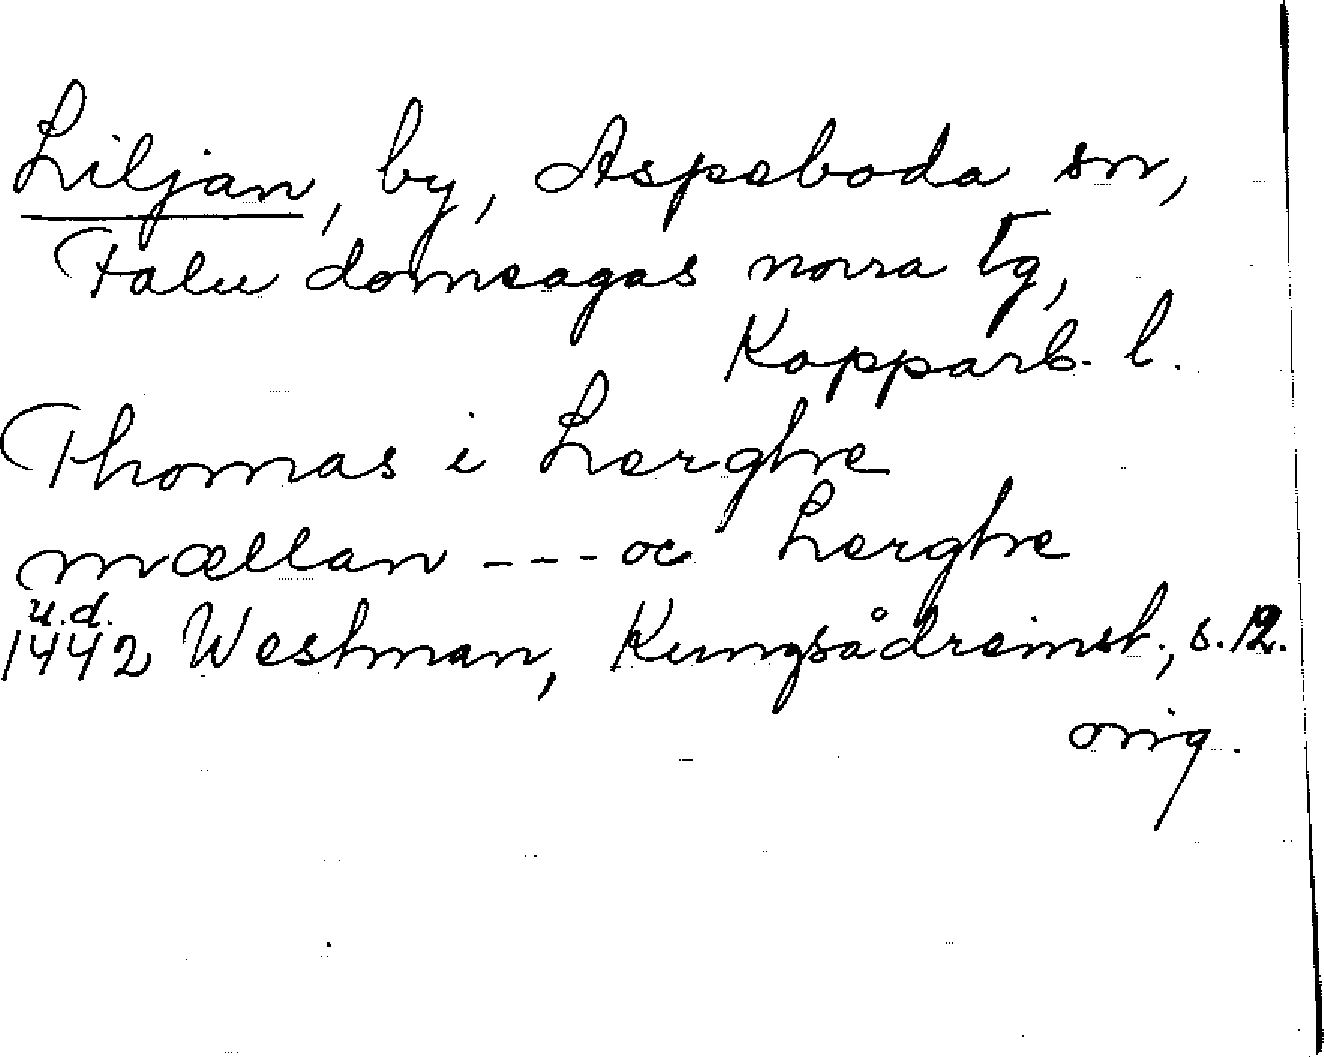 Liljan, by, Aspeboda sn,
Falu domsagas norra tg,
Kopparb. l.
Thomas i Lerghre
mællan --- oc Lerghre
u.d.
1442 Westman, Kungsådreinst., s. 12.
orig.